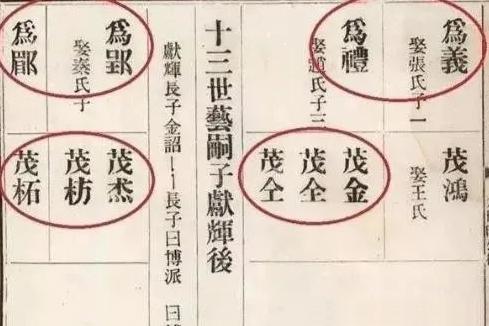 爲義
娶張氏子一
爲禮
娶趙氏子三
茂鴻
娶王氏
茂金
茂全
茂仝
十三世藝嗣子獻輝後
獻輝長子金詔——長子曰博派 曰
爲郢
娶秦氏子
爲
茂杰
茂枋
茂柘